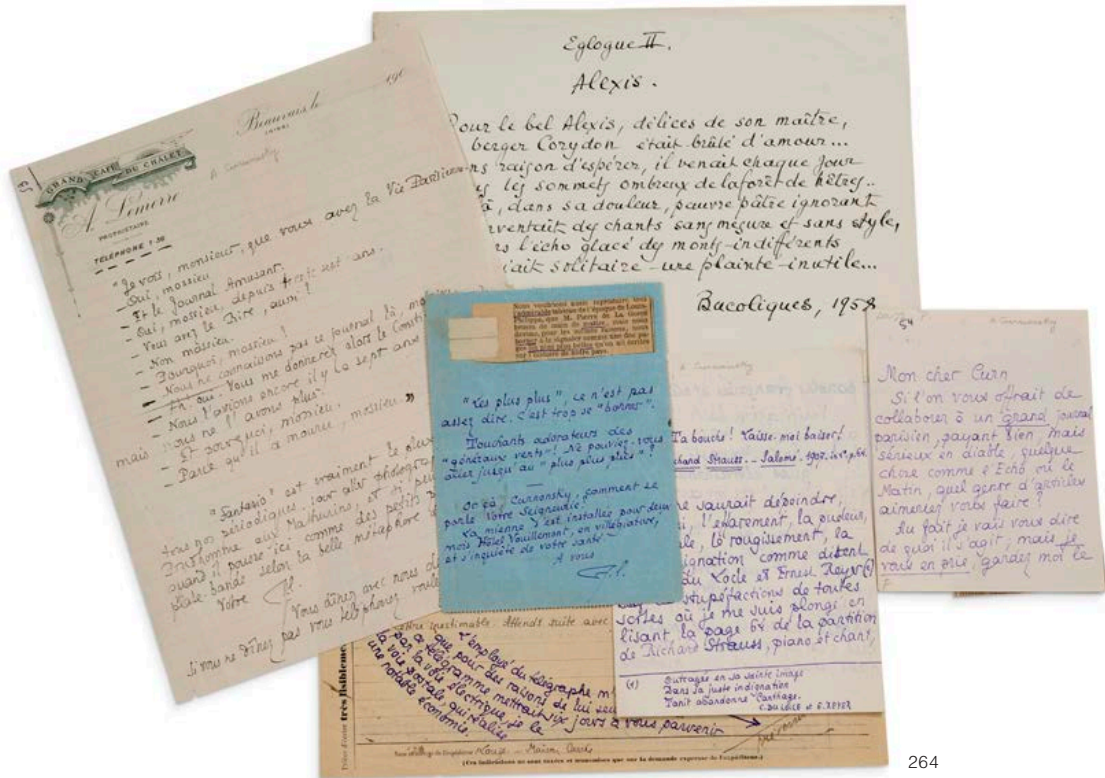 190
Beauvais, le
(OISE)
A Curnonsky
GRAND CAFÉ DU CHALET
A. Lemerre
PROPRIÉTAIRE
TÉLÉPHONE 1-36
"Je vois, monsieur, que vous avez la Vie Parisienne
- Oui, mossieu.
- Et le Journal Amusant.
- Oui, mossieu, depuis sept ans.
- Vous avez le Rire, aussi?
- Non mossieu.
- Pourquoi, mossieu?
- Nous ne connaissons pas ce journal là,
- Ah. oui. Vous me donnerez alors le
- Nous l'avions encore il y a sept ans
mais nous ne l'avons plus.
- Et pourquoi, mossieu,
- Parce qu'il a mouru, mossieu."
"Fantasio" est vraiment le plus
tous nos périodiques, pour aller
Prudhomme aux Mathurins, et
quand il pousse ici comme des petits
plate-bande selon la belle métaphore
Votre
Vous dînez avec nous
Si vous ne dînez pas vous téléphonez
Eglogue II.
Alexis.
Pour le bel Alexis, délices de son maître,
berger Corydon était brûlé d'amour...
ns raison d'espérer, il venait chaque jour
les sommets ombreux de la forêt de hêtres..
là, dans sa douleur, pauvre pâtre ignorant
ventait des chants sans mesure et sans style,
rs l'écho glacé des monts-indifférents
iait solitaire - une plainte - inutile...
Bacoliques, 1958
Nous voudrions aussi reproduire tout
l'admirable
Philippe, que M. Pierre de La Gorce
"Les plus plus", ce n'est pas
assez dire. C'est trop se "borner".
Touchants adorateurs des
"généraux verts"! Ne pouviez-vous
aller jusqu'au "plus plus plus"?
Or çà, Curnonsky, comment se
porte Votre Seigneurie?
La mienne s'est installée pour deux
mois Hôtel Vouillemont, en villégiature,
et s'inquiète de votre santé
A vous
A Curnonsky
Ta bouche! Laisse-moi baiser!
chard Strauss. - Salomé. 1907. p. 64.
ne saurait dépeindre,
i, l'effarement, la pudeur,
le, le rougissement, la
ignation comme disent
du Locle et Ernest Reyer (1)
stupéfactions de toutes
sortes où je me suis plongé en
lisant la page 64 de la partition
de Richard Strauss, piano et chant.
(1) Outragée en sa sainte image
Dans sa juste indignation
Tanit abandonne Carthage.
C. DU LOCLE et E. REYER
54
A Curnonsky
Mon cher Curn
Si l'on vous offrait de
collaborer à un grand journal
parisien, payant bien, mais
sérieux en diable, quelque
chose comme l'Echo ou le
Matin, quel genre d'articles
aimeriez vous faire?
Au fait je vais vous dire
de quoi il s'agit, mais je
vous en prie, gardez moi le
inestimable. Attends suite avec
L'employé du télégraphe m'
que pour des raisons de lui seul
ce télégramme mettrait six jours à vous parvenir
par la voie électrique, je le
la voie postale, qui réalise
une notable économie.
Prière d'écrire très lisiblement
(Ces indications ne sont taxées et transmises que sur la demande expresse de l'expéditeur.)
264